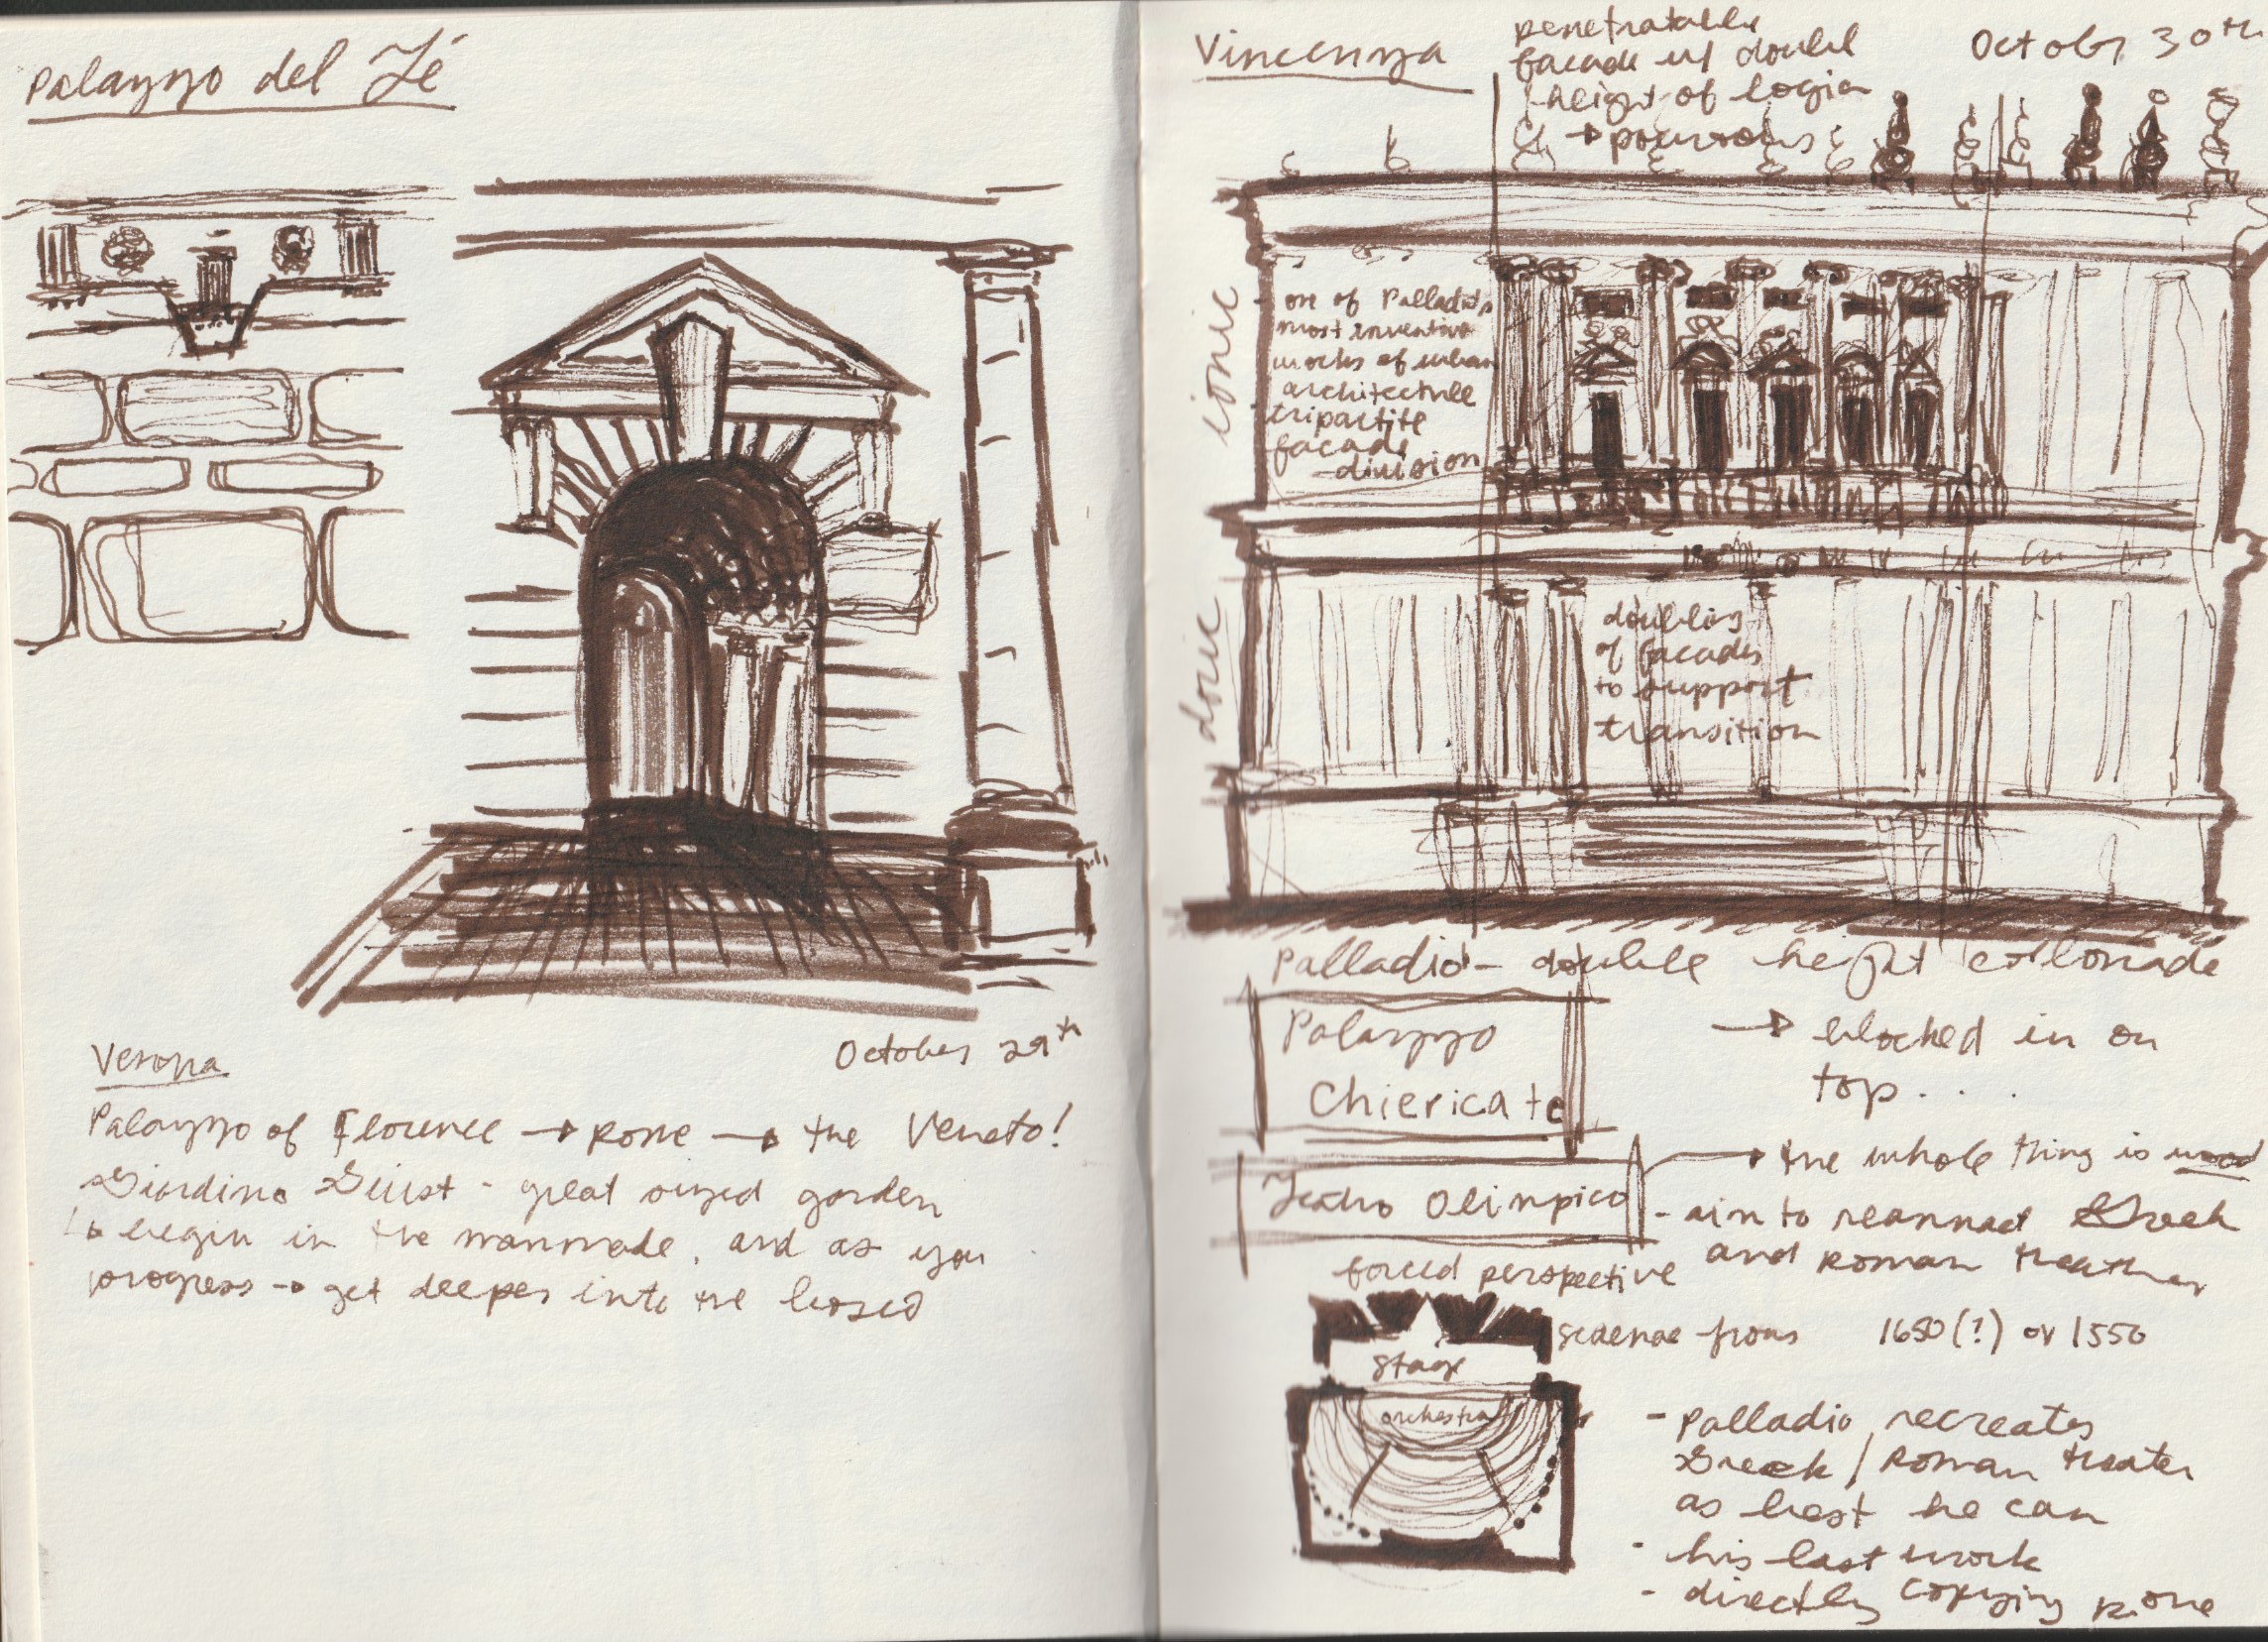 Palazzo del Té
Verona
October 29th
Palazzo of Florence → Rome → the Veneto!
Giardino Giust - great sized garden
↳ begin in the manmade, and as you
progress → get deeper into the
Vincenza
October 30th
penetratable
facade w/ doubl
height of logia
→
ionic
- one of Palladio's
most inventive
works of urban
architecture
- tripartite
facade
- division
doric
doubling
of facades
to support
transition
Palladio - double height collonade
→ blocked in on
top...
Palazzo
Chiericate
Teatro Olimpico
→ the whole thing is wood
- aim to reannact Greek
and Roman theather
forced perspective
scaenae frons 1650(?) or 1550
stage
orchestra
- Palladio recreates
Greek / Roman theater
as best he can
- his last work
- directly copying Rome